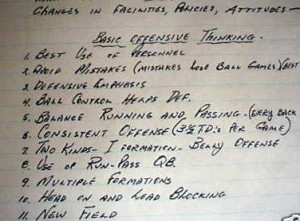 CHANGES IN FACILITIES, POLICIES, ATTITUDES -
BASIC OFFENSIVE THINKING.
1. BEST USE OF PERSONNEL
2. AVOID MISTAKES (MISTAKES LOSE BALL GAMES) (BEST
3. DEFENSIVE EMPHASIS
4. BALL CONTROL HELPS DEF.
5. BALANCE RUNNING AND PASSING. (EVERY BACK
6. CONSISTENT OFFENSE (3½ TD.'S PER GAME)
7. TWO KINDS - I FORMATION - BELLY OFFENSE
8. USE OF RUN-PASS QB.
9. MULTIPLE FORMATIONS
10. HEAD ON AND LEAD BLOCKING
11. NEW FIELD